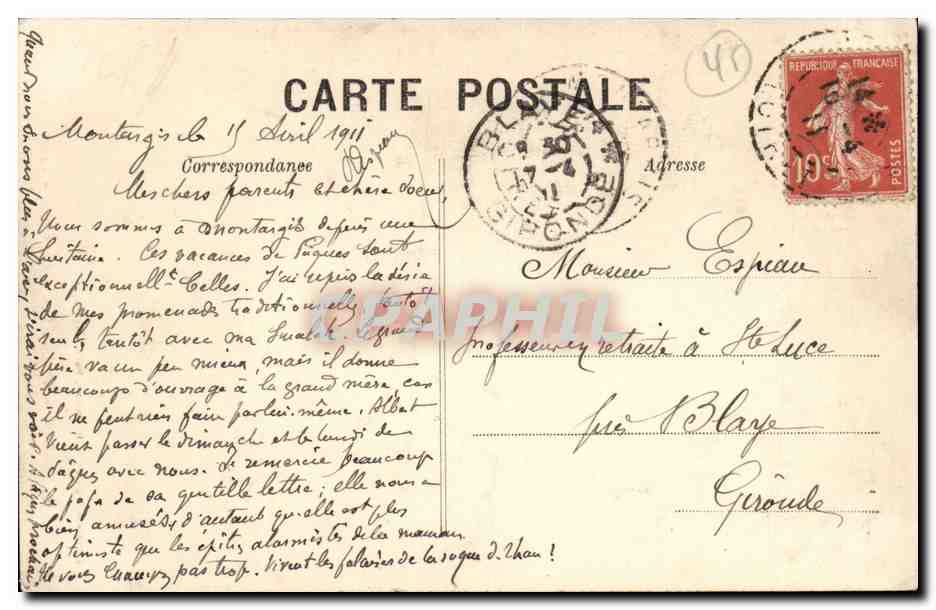 CARTE POSTALE
Montargis le 15 Avril 1911
Espiau
Correspondance
Adresse
Mes chers parents et chère soeur,
Nous sommes à Montargis depuis une
huitaine. Ces vacances de Pâques sont
exceptionnellt belles. J'ai repris la série
de mes promenades traditionnelles, tantôt
seul, tantôt avec ma Smalah. Le grand
père va un peu mieux, mais il donne
beaucoup d'ouvrage à la grand mère car
il ne peut rien faire par lui-même. Albert
vient passer le dimanche et le lundi de
Pâques avec nous. Je remercie beaucoup
le papa de sa gentille lettre ; elle nous a
bien amusés, d'autant qu'elle est plus
optimiste que les épîtres alarmistes de la maman
Ne vous pas trop. Vivent les falaises de la
Quand nous
Monsieur Espiau
Professeur en retraite à Ste Luce
près Blaye
Gironde
BLAYE
GIRONDE
7 -4
11
REPUBLIQUE FRANÇAISE
10c
POSTES
45
LAPHIL